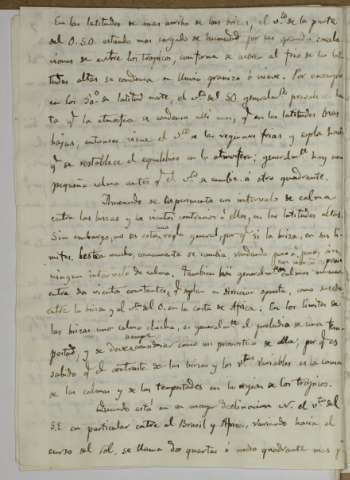 En las latitudes de mas arriba de las brisas, el v.to de la parte
del O. SO. estando mas cargado de humedad por las grandes
de entre los trópicos, conforme se acerca al frio de las lati-
tudes altas se condensa en lluvia granizo ó nieve. Por exemplo
en los 30° de latitud norte, el v.to del SO generalm.te
la atmosfera se condensa alli mas, q.e en las latitudes mas
bajas, entonces viene el v.to de las regiones frias y sopla hasta
q.e se restablece el equilibrio en la atmosfera; generalm.te hay una
pequeña calma antes q.e el v.to se cambie á otro quadrante.
se experimenta un intervalo de calma
entre las brisas y los vientos contrarios á ellas, en las latitudes altas.
Sin embargo, no es esta una regla general, por q.e si la brisa, en sus li-
mites, mucho, comunmente se cambia rondando poco a poco, sin
ningun intervalo de calma. Tambien hay generalm.te calmas
entre dos vientos constantes, q.e soplan en direccion opuesta, como sucede
entre la brisa y el v.to del O. en la costa de Africa. En los limites de
las brisas una calma chicha, es general.te el preludio de una tem-
pestad, y se debe siempre considerar como un pronostico de ella; por q.e es
sabido q.e el contraste de las brisas y los v.tos variables es la causa
de las calmas y de las tempestades en la region de los trópicos.
Quando está en su mayor declinacion N. el v.to del
S.E. en particular entre el Brasil y Africa, variando hacia el
curso del sol, se llama dos quartas ó medio quadrante mas